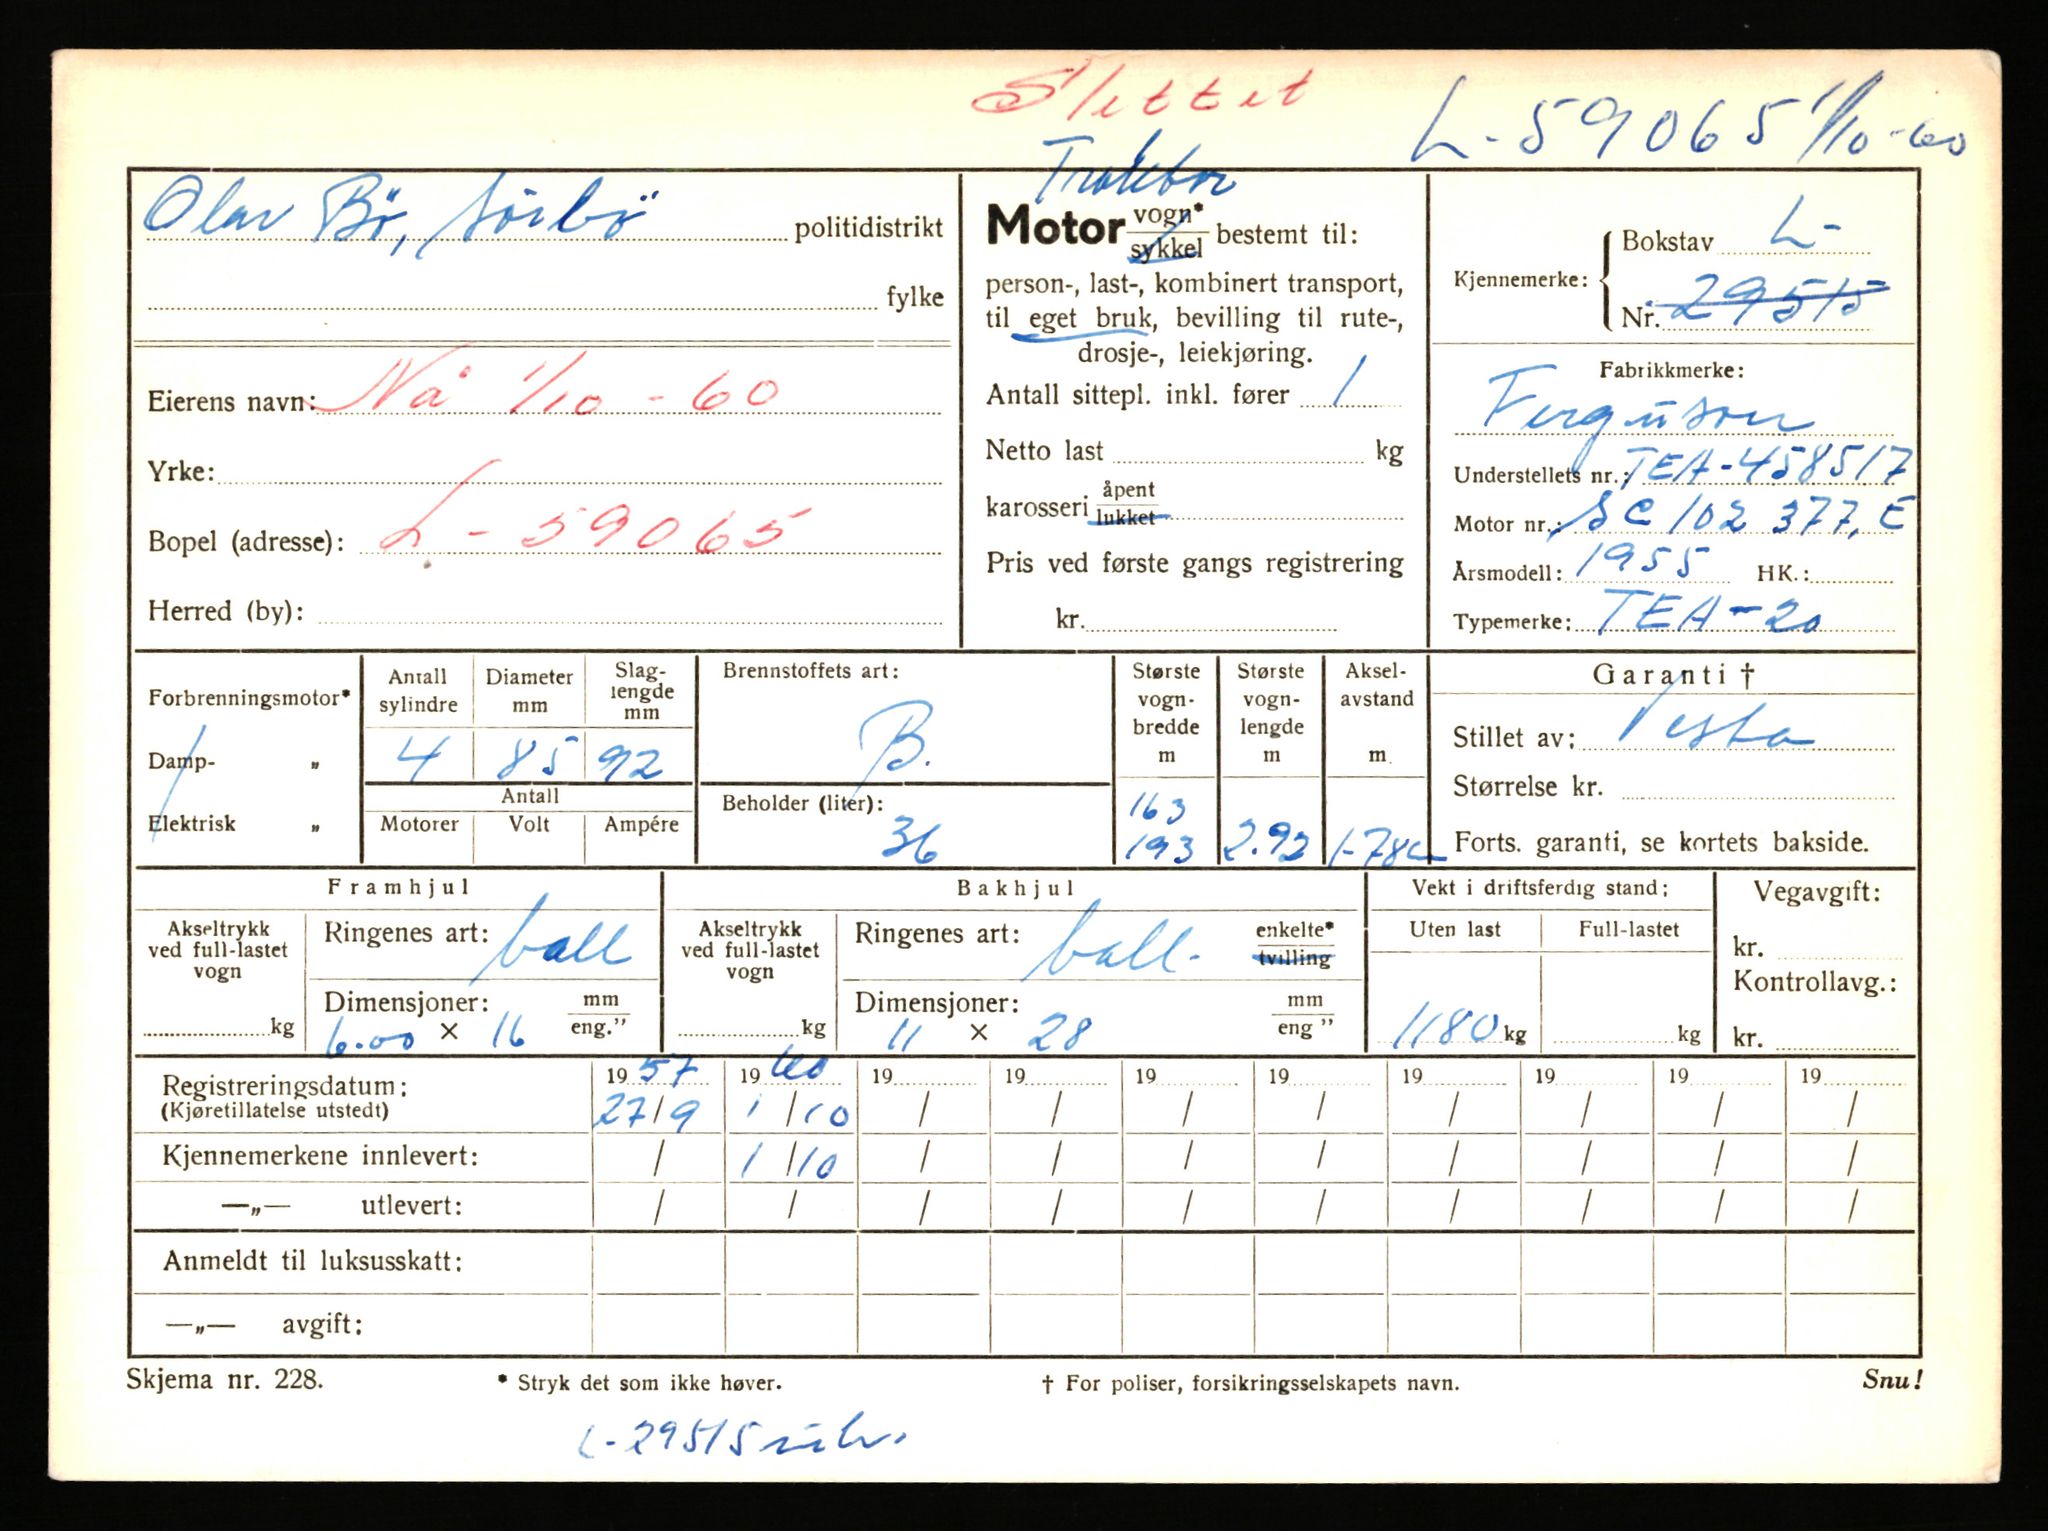 Slettet
L-59065 1/10-60
Olav Bö, Sörbö politidistrikt
fylke
Eierens navn: Nå 1/10 - 60
Yrke:
Bopel (adresse): L - 59065
Herred (by):
Traktor
Motor vogn* sykkel bestemt til:
person-, last-, kombinert transport,
til eget bruk, bevilling til rute-,
drosje-, leiekjøring.
Antall sittepl. inkl. fører 1
Netto last kg
karosseri åpent lukket
Pris ved første gangs registrering
kr.
Kjennemerke: Bokstav L-
Nr. 29515
Fabrikkmerke:
Ferguson
Understellets nr.: TEA-458517
Motor nr.: SC 102 377, E
Årsmodell: 1955 HK.:
Typemerke: TEA-20
Forbrenningsmotor*
Damp- „
Elektrisk „
Antall sylindre Diameter mm Slaglengde mm
4 85 92
Antall
Motorer Volt Ampére
Brennstoffets art:
B.
Beholder (liter):
36
Største vogn-bredde m
163
193
Største vogn-lengde m
2.92
Aksel-avstand m
Garanti †
Stillet av: Vesta
Størrelse kr.
Forts. garanti, se kortets bakside.
Framhjul
Akseltrykk ved full-lastet vogn kg
Ringenes art: ball
Dimensjoner: mm eng."
6.00 × 16
Bakhjul
Akseltrykk ved full-lastet vogn kg
Ringenes art: ball- enkelte* tvilling
Dimensjoner: mm eng "
11 × 28
Vekt i driftsferdig stand:
Uten last Full-lastet
1180 kg kg
Vegavgift:
kr.
Kontrollavg.:
kr.
Registreringsdatum: 1957 1960 19 19 19 19 19 19 19 19
(Kjøretillatelse utstedt) 27/9 1/10 / / / / / / / /
Kjennemerkene innlevert: / 1/10 / / / / / / / /
—„— utlevert: / / / / / / / / / /
Anmeldt til luksusskatt:
—„— avgift:
Skjema nr. 228. * Stryk det som ikke høver. † For poliser, forsikringsselskapets navn. Snu!
L-29515